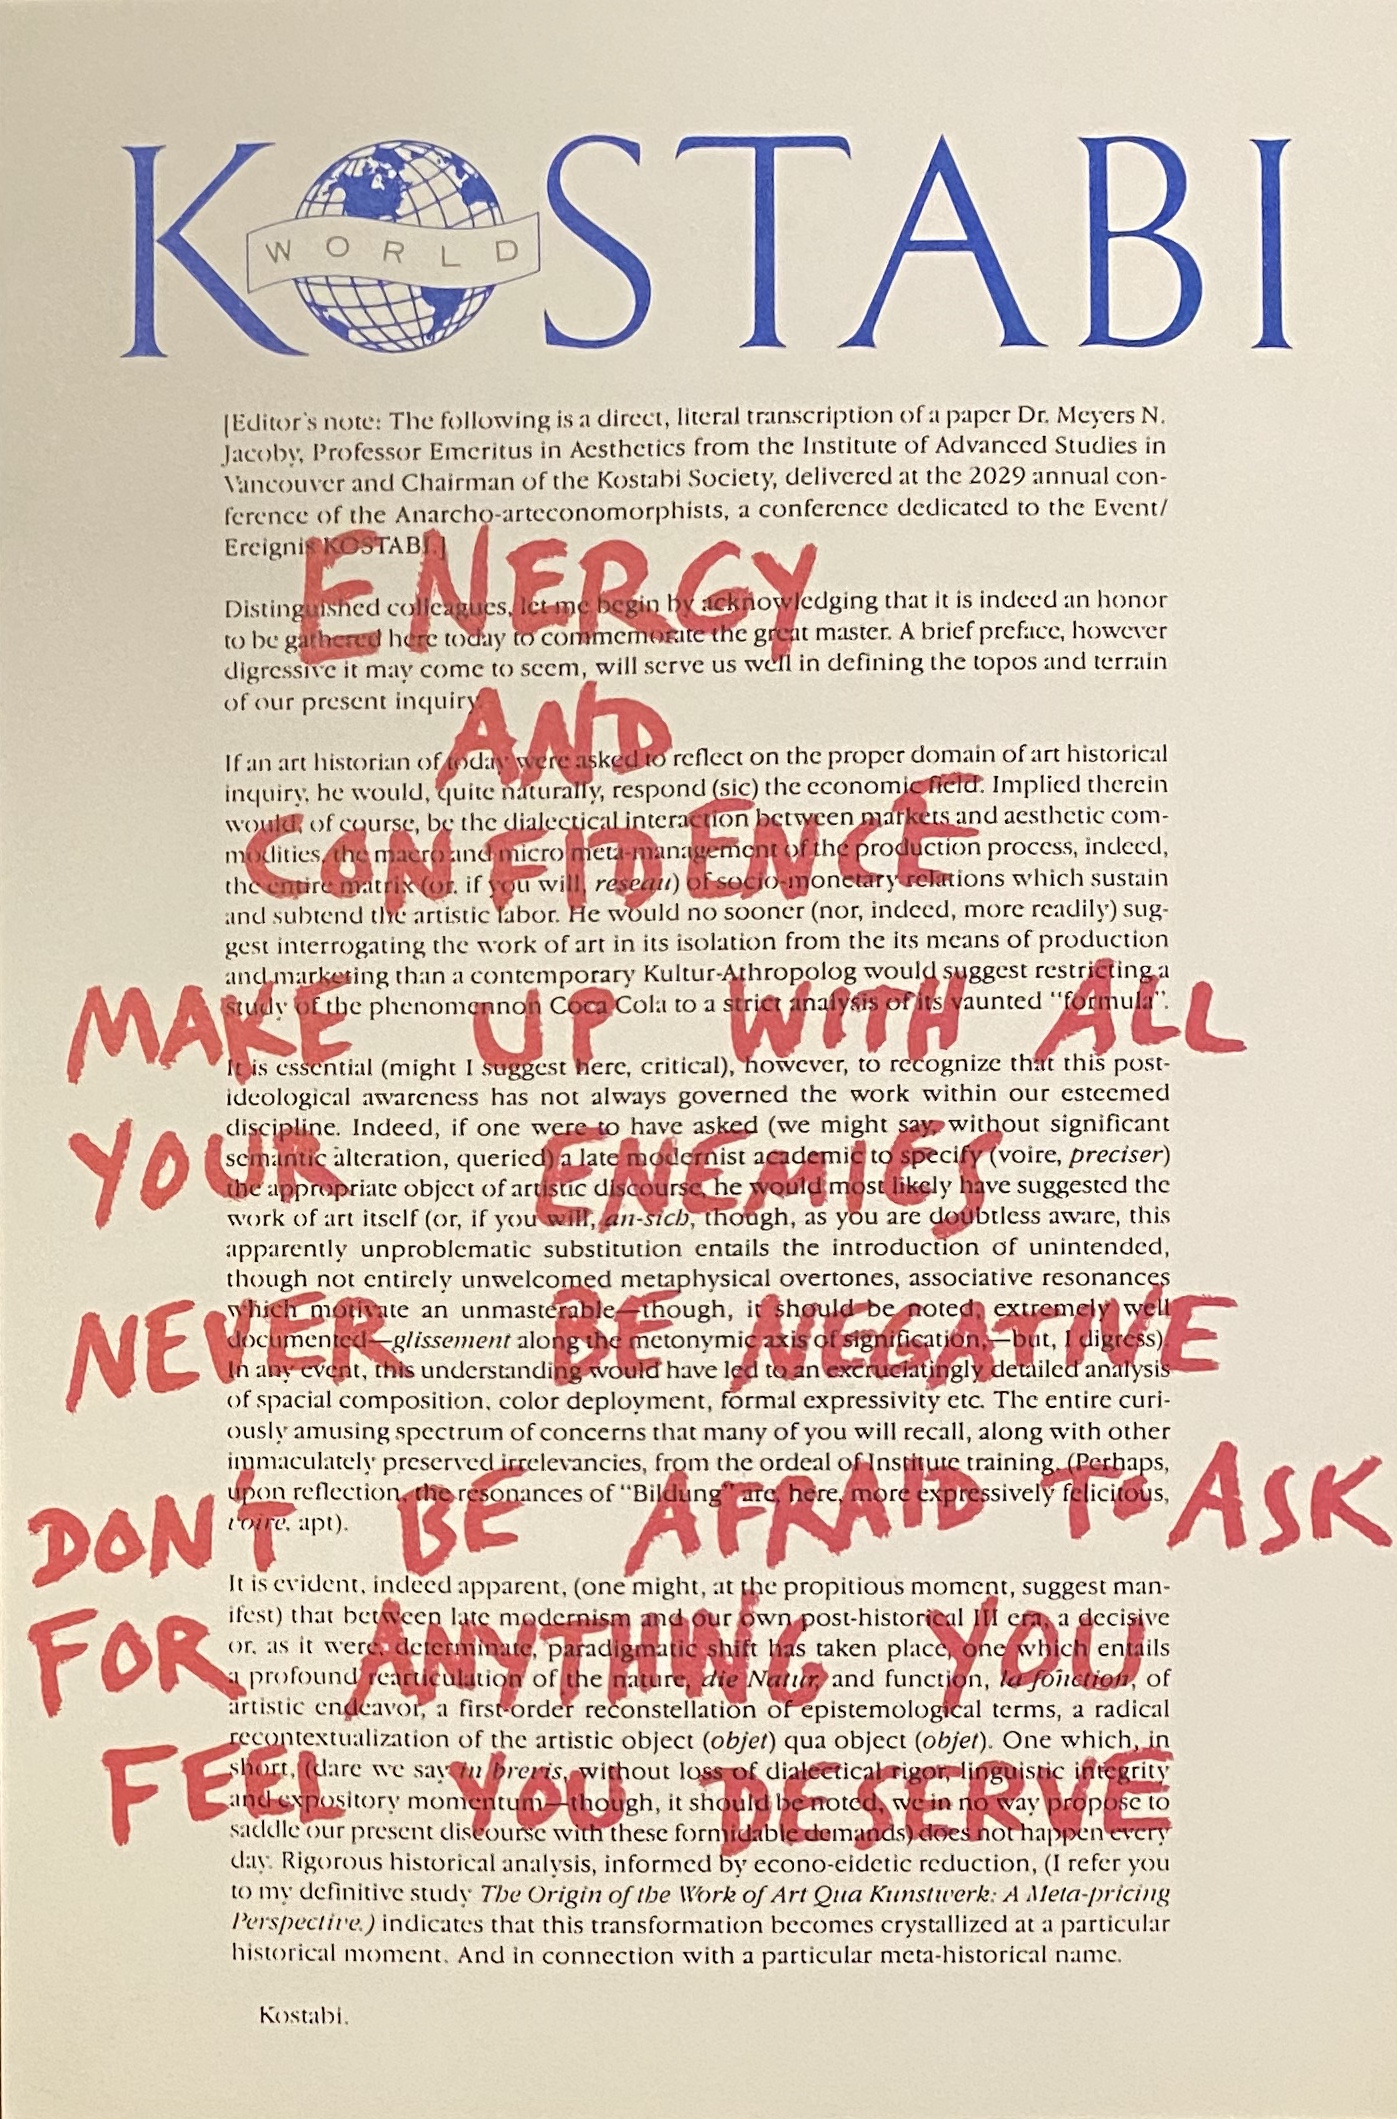 KOSTABI
WORLD
[Editor's note: The following is a direct, literal transcription of a paper Dr. Meyers N.
Jacoby, Professor Emeritus in Aesthetics from the Institute of Advanced Studies in
Vancouver and Chairman of the Kostabi Society, delivered at the 2029 annual con-
ference of the Anarcho-arteconomorphists, a conference dedicated to the Event/
Ereignis KOSTABI.]
ENERGY
Distinguished colleagues, let me begin by acknowledging that it is indeed an honor
to be gathered here today to commemorate the great master. A brief preface, however
digressive it may come to seem, will serve us well in defining the topos and terrain
of our present inquiry.
AND
If an art historian of today were asked to reflect on the proper domain of art historical
inquiry, he would, quite naturally, respond (sic) the economic field. Implied therein
would, of course, be the dialectical interaction between markets and aesthetic com-
modities, the macro and micro meta-management of the production process, indeed,
CONFIDENCE
the entire matrix (or, if you will, reseau) of socio-monetary relations which sustain
and subtend the artistic labor. He would no sooner (nor, indeed, more readily) sug-
gest interrogating the work of art in its isolation from the its means of production
and marketing than a contemporary Kultur-Athropolog would suggest restricting a
study of the phenomennon Coca Cola to a strict analysis of its vaunted "formula".
MAKE UP WITH ALL
It is essential (might I suggest here, critical), however, to recognize that this post-
ideological awareness has not always governed the work within our esteemed
discipline. Indeed, if one were to have asked (we might say, without significant
semantic alteration, queried) a late modernist academic to specify (voire, preciser)
YOUR ENEMIES
the appropriate object of artistic discourse, he would most likely have suggested the
work of art itself (or, if you will, an-sich, though, as you are doubtless aware, this
apparently unproblematic substitution entails the introduction of unintended,
though not entirely unwelcomed metaphysical overtones, associative resonances
which motivate an unmasterable—though, it should be noted, extremely well
documented—glissement along the metonymic axis of signification,—but, I digress).
NEVER BE NEGATIVE
In any event, this understanding would have led to an excruciatingly detailed analysis
of spacial composition, color deployment, formal expressivity etc. The entire curi-
ously amusing spectrum of concerns that many of you will recall, along with other
immaculately preserved irrelevancies, from the ordeal of Institute training. (Perhaps,
upon reflection, the resonances of "Bildung" are, here, more expressively felicitous,
voire, apt).
DON'T BE AFRAID TO ASK
It is evident, indeed apparent, (one might, at the propitious moment, suggest man-
ifest) that between late modernism and our own post-historical III era, a decisive
or, as it were, determinate, paradigmatic shift has taken place, one which entails
FOR ANYTHING YOU
a profound rearticulation of the nature, die Natur, and function, la fonction, of
artistic endeavor, a first-order reconstellation of epistemological terms, a radical
recontextualization of the artistic object (objet) qua object (objet). One which, in
short, (dare we say in breris, without loss of dialectical rigor, linguistic integrity
and expository momentum—though, it should be noted, we in no way propose to
FEEL YOU DESERVE
saddle our present discourse with these formidable demands) does not happen every
day. Rigorous historical analysis, informed by econo-eidetic reduction, (I refer you
to my definitive study The Origin of the Work of Art Qua Kunstwerk: A Meta-pricing
Perspective.) indicates that this transformation becomes crystallized at a particular
historical moment. And in connection with a particular meta-historical name.
Kostabi.